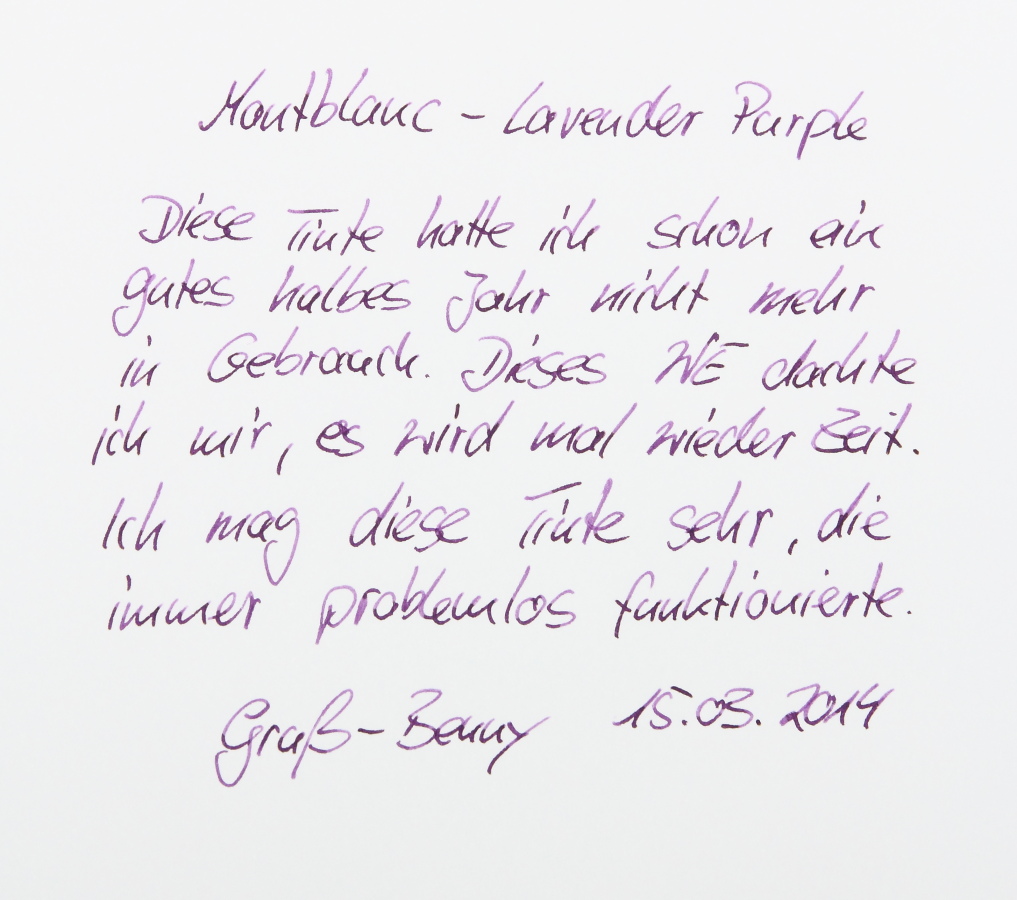 Montblanc - Lavender Purple
Diese Tinte hatte ich schon ein
gutes halbes Jahr nicht mehr
in Gebrauch. Dieses WE dachte
ich mir, es wird mal wieder Zeit.
Ich mag diese Tinte sehr, die
immer problemlos funktionierte.
Gruß-Benny 15.03.2014